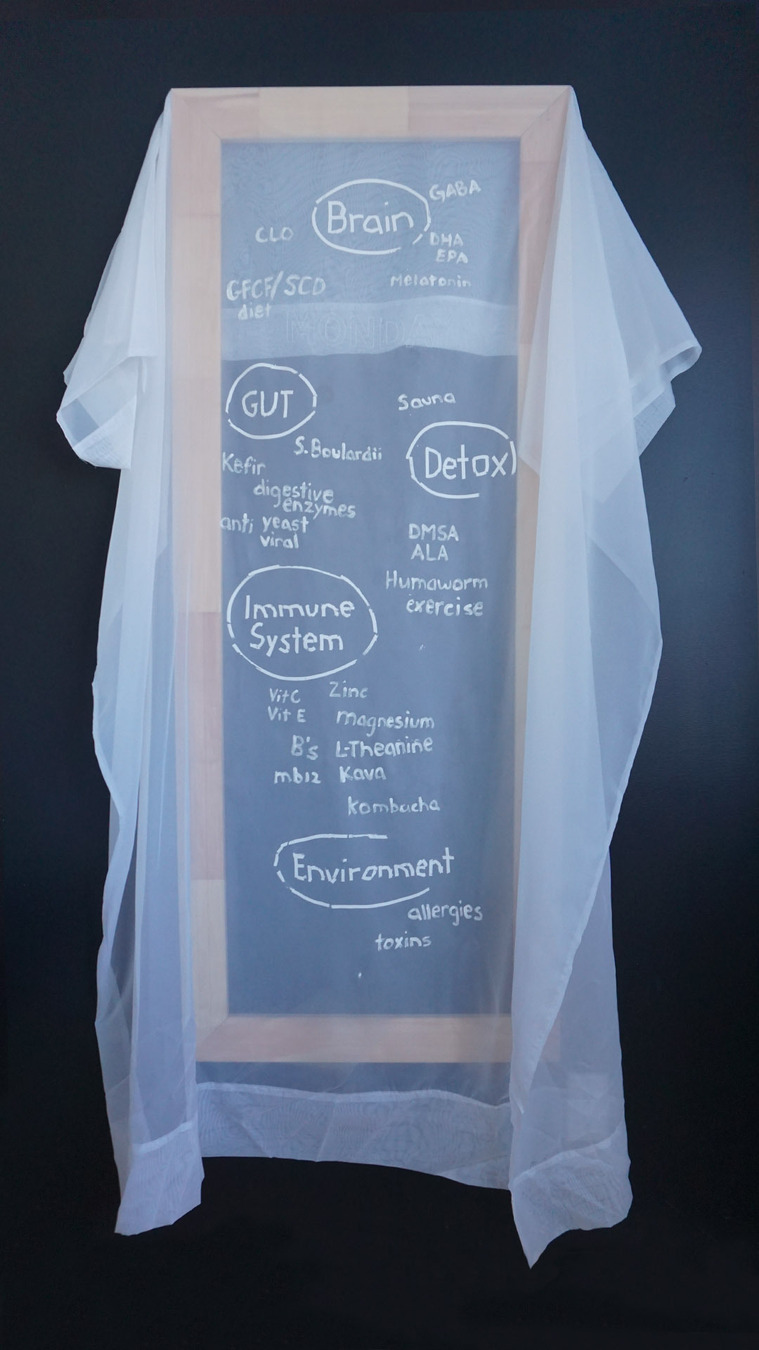 GABA
Brain
CLO
DHA
EPA
Melatonin
GFCF/SCD
diet
MONDAY
GUT
Sauna
S.Boulardii
Detox
Kefir
digestive
enzymes
anti yeast
viral
DMSA
ALA
Humaworm
exercise
Immune
System
Vit C
Zinc
Vit E
Magnesium
B's
L-Theanine
mb12
Kava
Kombucha
Environment
allergies
toxins